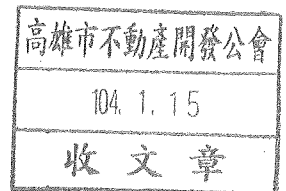 高雄市不動產開發公會
104. 1. 15
收文章